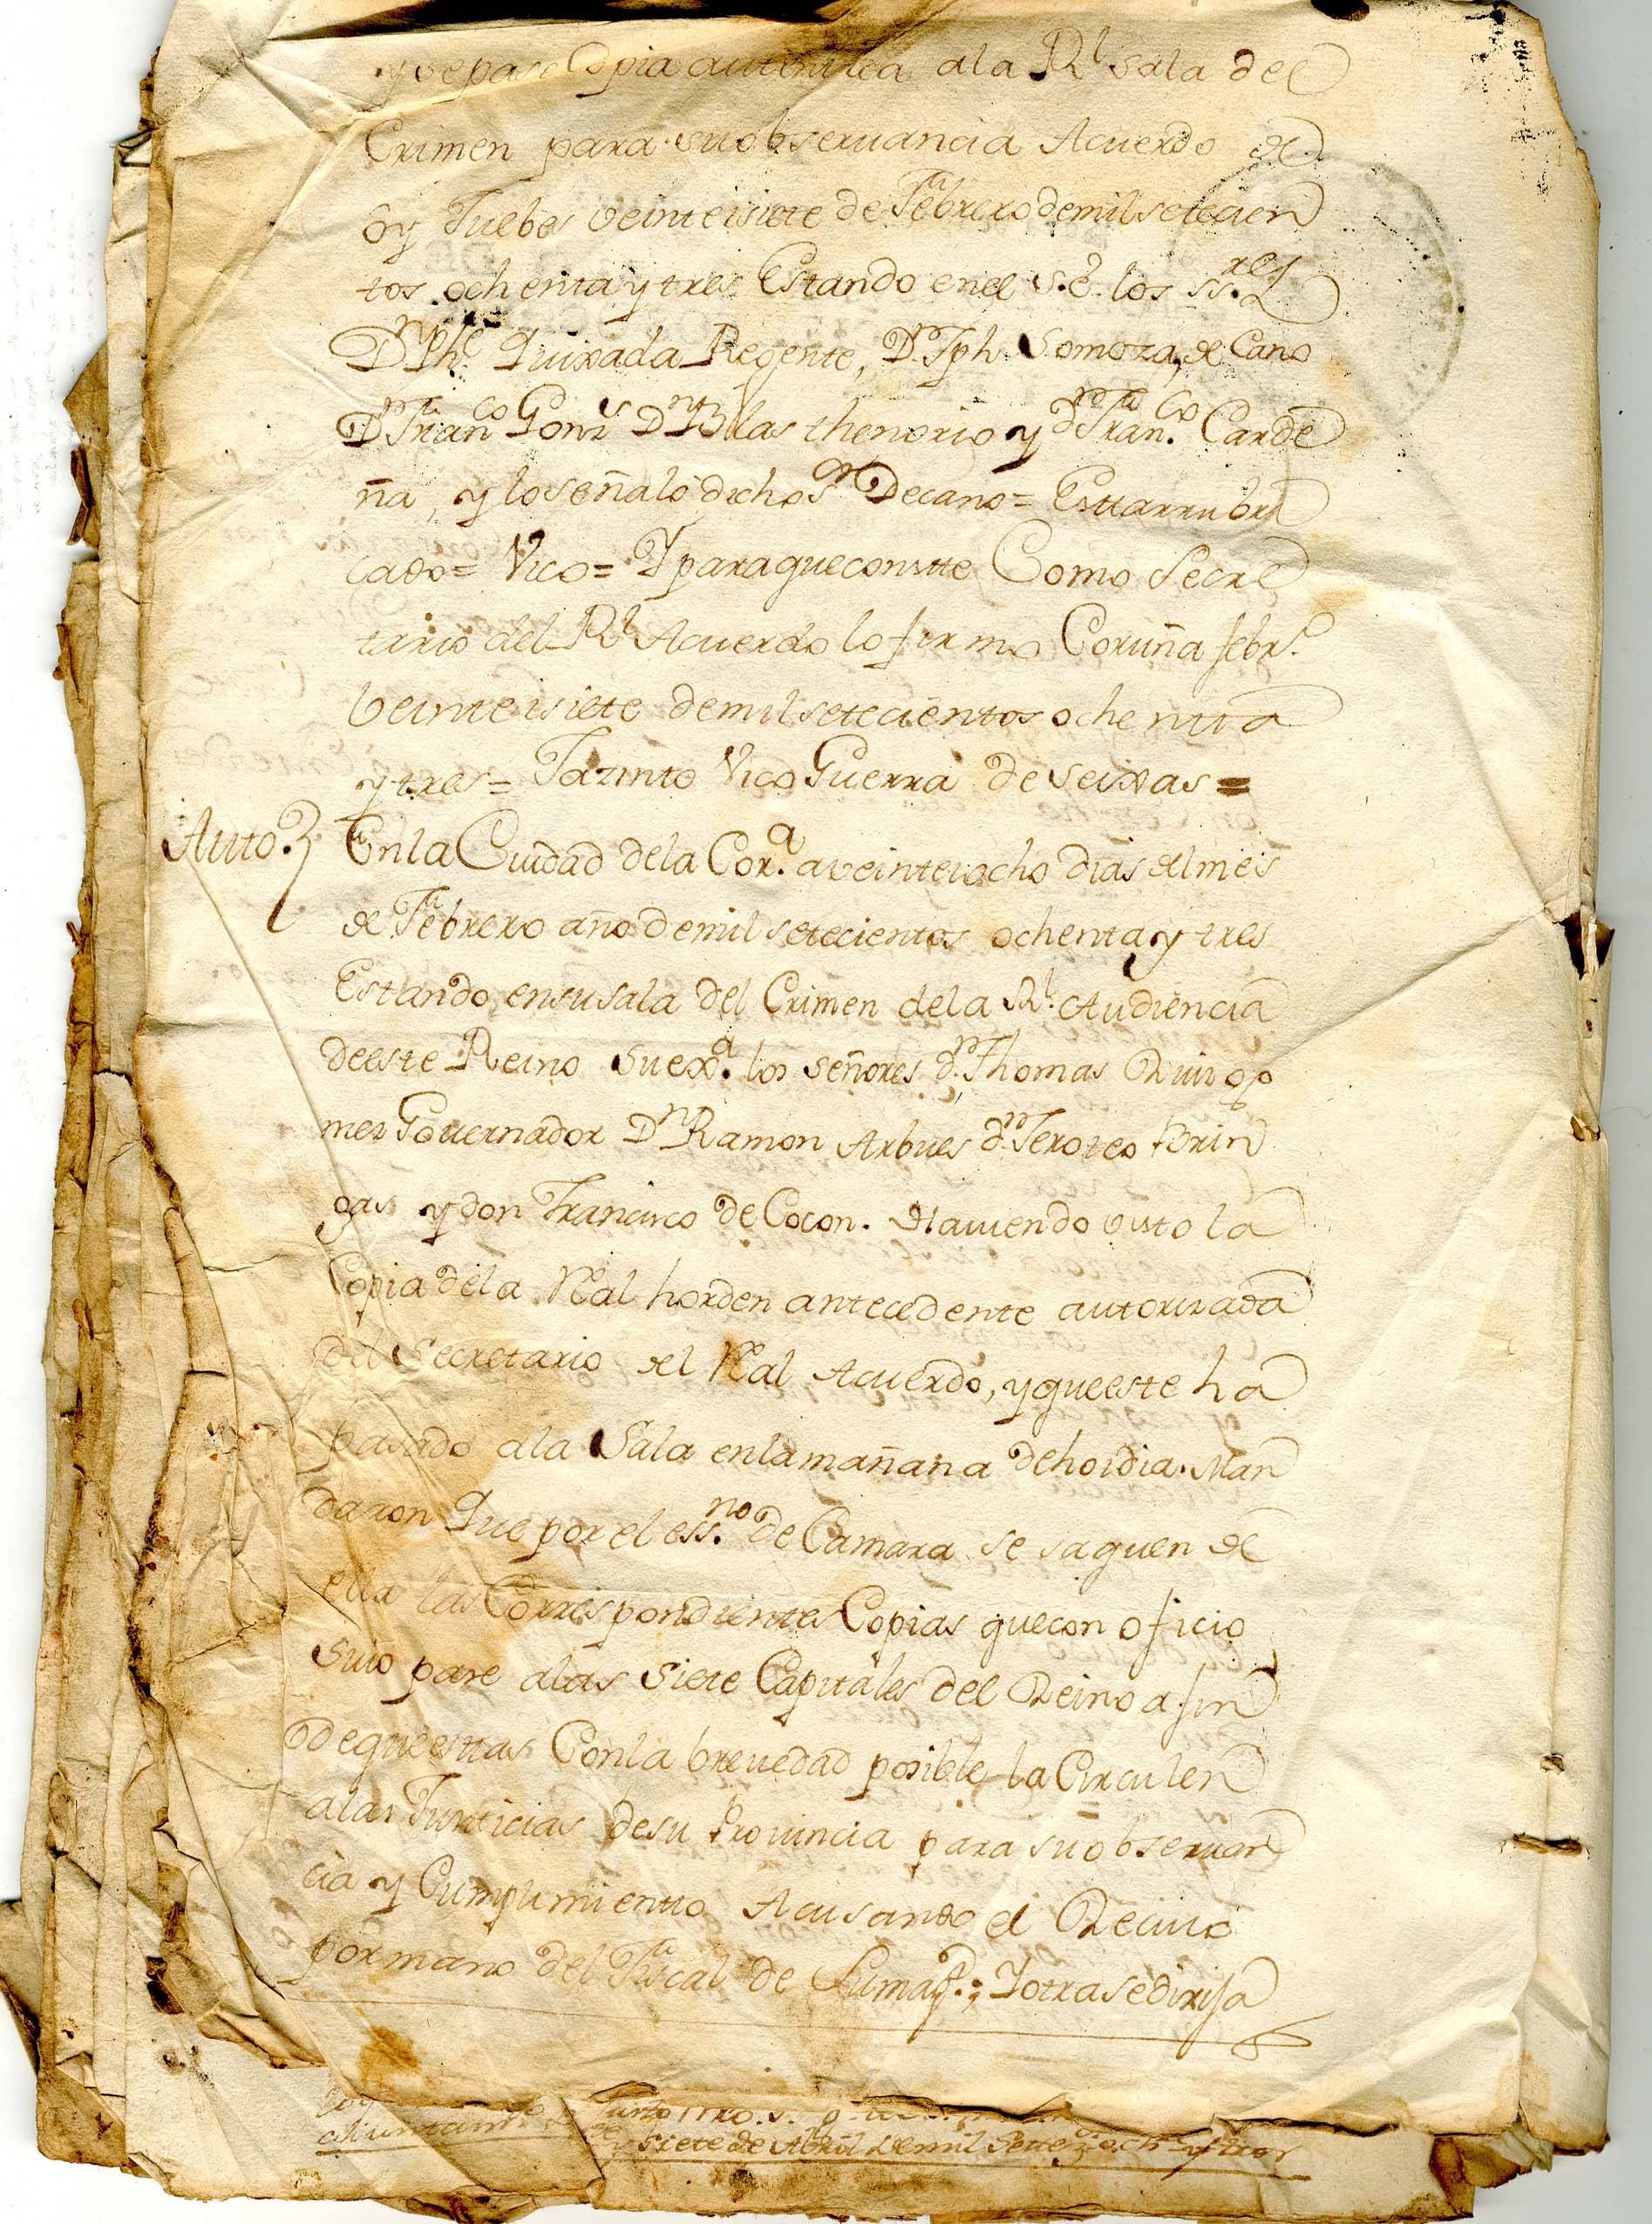 y se pase Copia autentica a la Rl sala del
Crimen para su observancia Acuerdo de
oy Juebes veinte i siete de Febrero de mil setecien
tos ochenta y tres Estando en el S.e los SS.res
Dn Phe Quixada Regente, Dn Jph Somoza, de Cano
Dn Franco Gonz Dn Blas thenorio y dn Fran.co Carde
ña, y lo señaló dicho Sr Decano = Esttarrubri
cado = Vico = Y para que constte Como Secre
tario del Rl Acuerdo lo firmo Coruña febro
veinte i siete de mil setecientos ochenta
y tres = Jazinto Vico Guerra de Seixas =
Auto. En la Ciudad de la Cor.a a veinte i ocho dias del mes
de Febrero año de mil setecientos ochenta y tres
Estando en su sala del Crimen de la Rl. Audiencia
de este Reino su exa. los señores dn Thomas Ruiz Go
mez Governador Dn Ramon Arbues dn Jeroteo Brin
gas y don Francisco de Cocon. Haviendo visto la
Copia de la Real horden antecedente autorizada
del Secretario del Real Acuerdo, y que este ha
pasado a la Sala en la mañana de hoi dia. Man
daron Que por el ess.no de Camara se saquen de
ella las Correspondientes Copias que con oficio
suio pase a las siete Capitales del Reino a fin
de que esttas Con la brevedad posible la Circulen
a las Justicias de su Provincia para su observan
cia y Cumplimientto Acusando el Recivo
por mano del Fiscal de su Magd.; Y otra se dirija
siete de Abril de mil Settez.s och.ta y tres